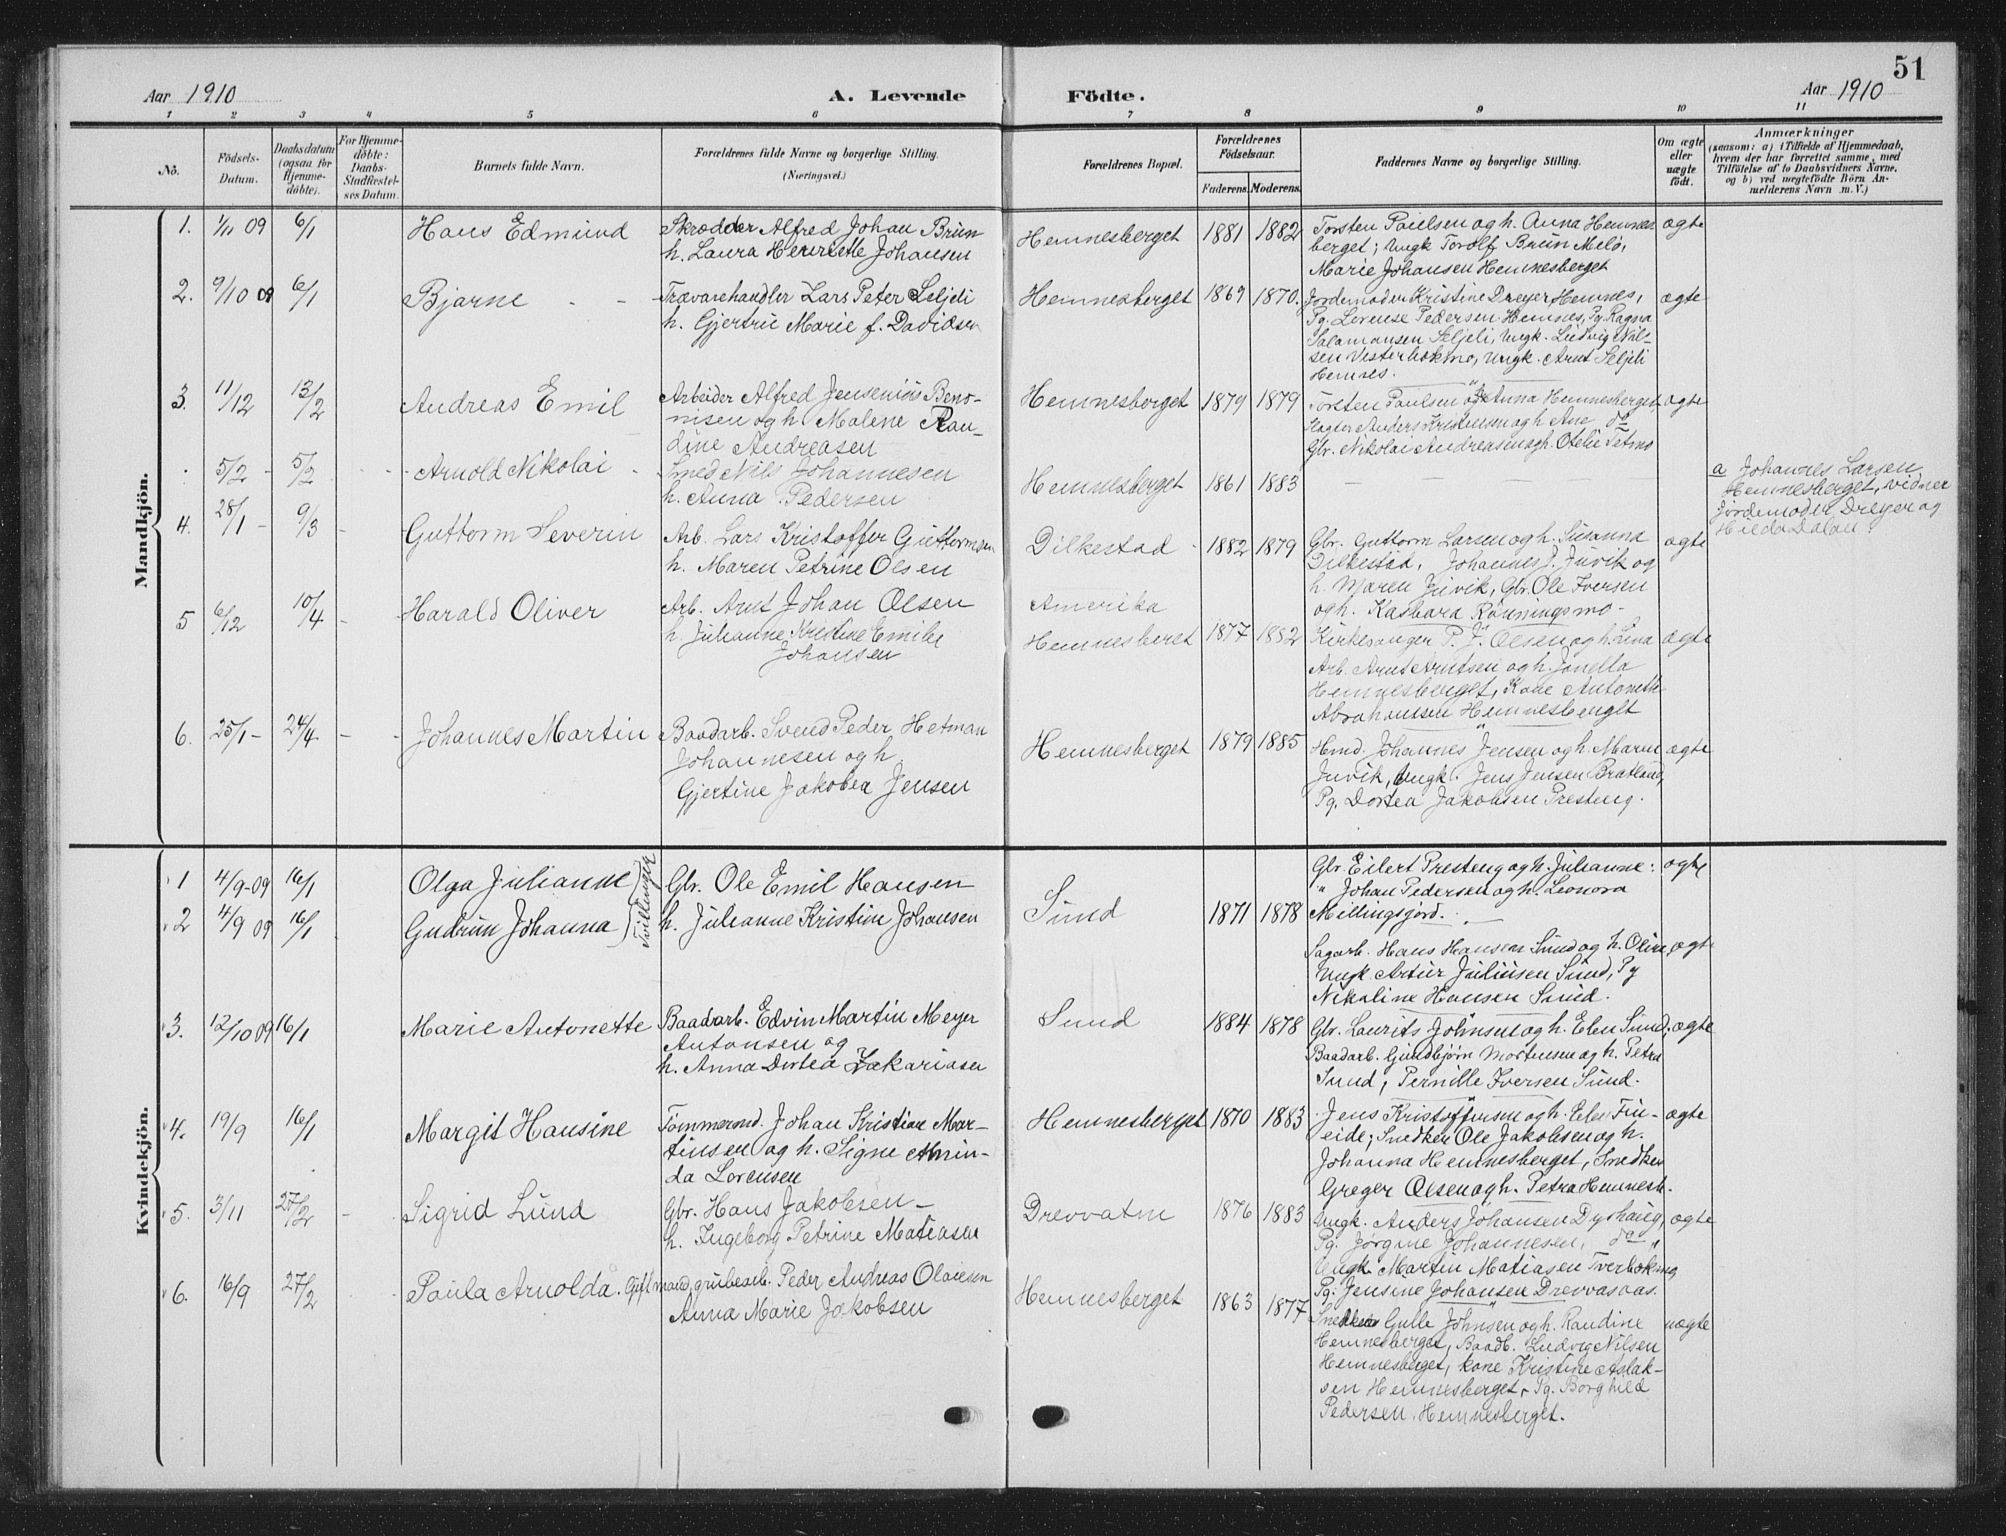 51
Aar 1910
A. Levende Födte.
Aar 1910
1 2 3 4 5 6 7 8 9 10 11
No.
Födsels-Datum.
Daabsdatum (ogsaa for Hjemmedöbte).
For Hjemmedöbte: Daabs-Stadfæstelses Datum.
Barnets fulde Navn.
Forældrenes fulde Navne og borgerlige Stilling.
(Næringsvei.)
Forældrenes Bopæl.
Forældrenes Födselsaar.
Faderens. Moderens.
Faddernes Navne og borgerlige Stilling.
Om ægte eller uægte födt.
Anmærkninger
(saasom: a) i Tilfælde af Hjemmedaab,
hvem der har forrettet samme, med
Tilföielse af to Daabsvidners Navne,
og b) ved uægtefödte Börn An-
melderens Navn m. V.)
Mandkjön.
1. 1/11 09 6/1 Hans Edmund
Skrædder Alfred Johan Brun
h. Laura Henriette Johansen
Hemnesberget 1881 1882
Torsten Paulsen og h. Anna Hemnes
berget; Ungk Torolf Brun Melø,
Marie Johansen Hemnesberget
ægte
2. 9/10 09 6/1 Bjarne
Trævarehandler Lars Peter Seljeli
h. Gjertric Marie f. Davidsen
Hemnesberget 1869 1870.
Jordemoder Kristine Dreyer Hemnes,
Pg. Lorense Pedersen Hemnes, Pg. Ragna
Salamonsen Seljeli, Ungk. Ludvig Nil-
sen Vesterbækmo, Ungk. Arnt Seljeli
Hemnes.
ægte
3. 11/12 13/2 Andreas Emil
Arbeider Alfred Jenseniüs Beno-
nisen og h. Malene Ran-
dine Andreasen
Hemnesberget 1879 1879
Torsten Paulsen og h. Anna Hemnesberget
Slagter Anders Kristensen og h. Ane do
Gbr. Nikolai Andreasen og h. Otelie Setmo
ægte
5/2 - 5/2 - - Arnold Nikolai -
Smed Nils Johannesen
h. Anna Pedersen
Hemnesberget 1861 1883
a Johannes Larsen
Hemnesberget, vidner
Jordemoder Dreyer og
Hilda Dalen
4. 28/1 - 9/3 - Guttorm Severin
Arb. Lars Kristoffer Guttormsen
h. Maren Petrine Olsen
Dilkestad - 1882 1879
Gbr. Guttorm Larsen og h. Susanna
Dilkestad, Johannes J. Juvik og
h. Maren Juvik, Gbr. Ole Iversen
og h. Kasbara Rønningsmo -
ægte
5 6/12 10/4 - Harald Oliver
Arb. Arnt Johan Olsen
h. Julianne Kristine Emilie
Johansen
Amerika
Hemnesberet 1877 1882
Kirkesanger P. J. Olsen og h. Lina
Arb. Arnt Arntsen og h. Jonella
Hemnesberget, Kone Antoneth
Abrahamsen Hemnesberget
ægte
6. 25/1 - 24/4 - - Johannes Martin
Baadarb. Svend Peder Hetman
Johannesen og h
Gjertine Jakobea Jensen
Hemnesberget 1879 1885
Hmd. Johannes Jensen og h. Maren
Juvik, Ungk. Jens Jensen Bratland,
Pg. Dortea Jakobsen Presteng.
ægte
Kvindekjön.
1 4/9-09 16/1 Olga Julianne
2 4/9 09 16/1 Gudrun Johanna
Tvillinger
Gbr. Ole Emil Hansen
h. Julianne Kristine Johansen
Sund 1871 1878
Gbr. Eilert Presteng og h. Julianne
" Johan Pedersen og h. Leonora
Millingsjord.
ægte
Sagarb. Hans Hansen Sund og h. Oline,
Ungk. Artur Juliusen Sund, Pg
Nikoline Hansen Sund.
ægte
3. 12/10 09 16/1 Marie Antonette
Baadarb. Edvin Martin Meyer
Antonsen og
h. Anna Dortea Zakariasen
Sund 1884 1878
Gbr. Laurits Johnsen og h. Elen Sund,
Baadarb. Gundbjørn Mortensen og h. Petra
Sund, Pernille Iversen Sund.
ægte
4. 19/9 16/1 Margit Hansine
Tømmermd. Johan Kristian Mar-
tinsen og h. Signe Amin-
da Lorensen
Hemnesberget 1870 1883
Jens Kristoffersen og h. Elen Fin-
eide; Snedker Ole Jakobsen og h.
Johanna Hemnesberget, Snedker
Greger Olsen og h. Petra Hemnesb.
ægte
5. 3/11 27/2 - Sigrid Lund
Gbr. Hans Jakobsen -
h. Ingeborg Petrine Matiasen
Drevvatn 1876 1883
Ungk. Anders Johansen Dyshaug,
Pg. Jørgine Johannesen, do,
Ungk. Martin Matiasen Tverbækmo
Pg. Jensine Johansen Drevvasaas.
ægte
6. 16/9 27/2 Paula Arnolda.
Gift mand, grubearb. Peder Andreas Olaisen
Anna Marie Jakobsen
Hemnesberget 1863 1877
Snedker Gulle Johnsen og h. Randine
Hemnesberget, Baadb. Ludvig Nilsen
Hemnesberget, kone Kristine Aslak-
sen Hemnesberget, Pg. Borghild
Pedersen, Hemnesberget.
uægte